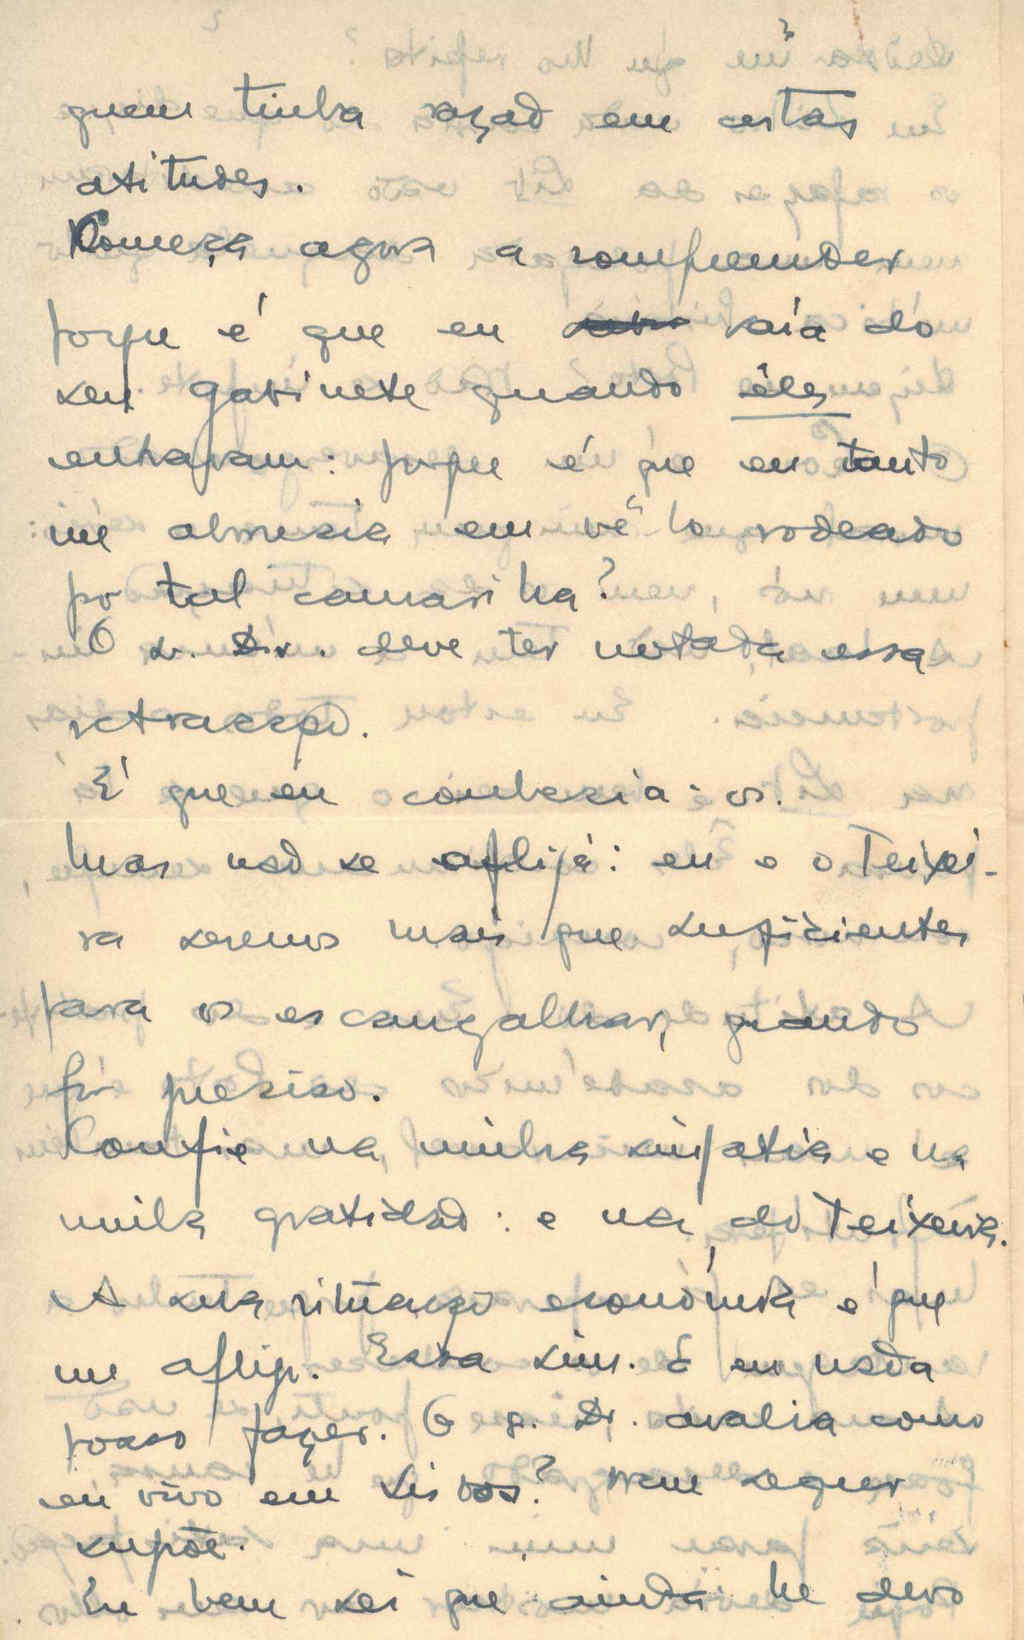 quem tinha razão em certas
atitudes.
Começa agora a compreender
porque é que eu saía do
seu gabinete quando êles
entravam: porque é que eu tanto
me aborrecia em vê-lo rodeado
por tal camarilha?
O Sr. Dr. deve ter notada essa
retracção.
É que eu conhecia-os.
Mas não se aflija: eu e o Teixei-
ra seremos mais que suficientes
para os escangalhar, quando
fôr preciso.
Confie na minha simpatia e na
minha gratidão: e na do Teixeira.
A sua situação económica é que
me aflige. Essa sim. E eu nada
posso fazer. O S. Dr. avalia como
eu vivo em Lisboa? Nem sequer
supõe.
Eu bem sei que ainda lhe devo